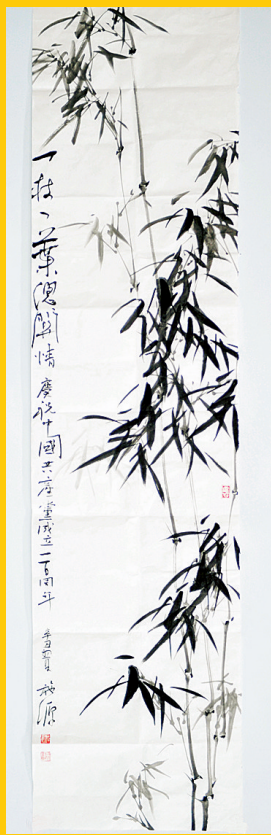 一枝一葉總關情 慶祝中國共產黨成立一百周年
辛丑